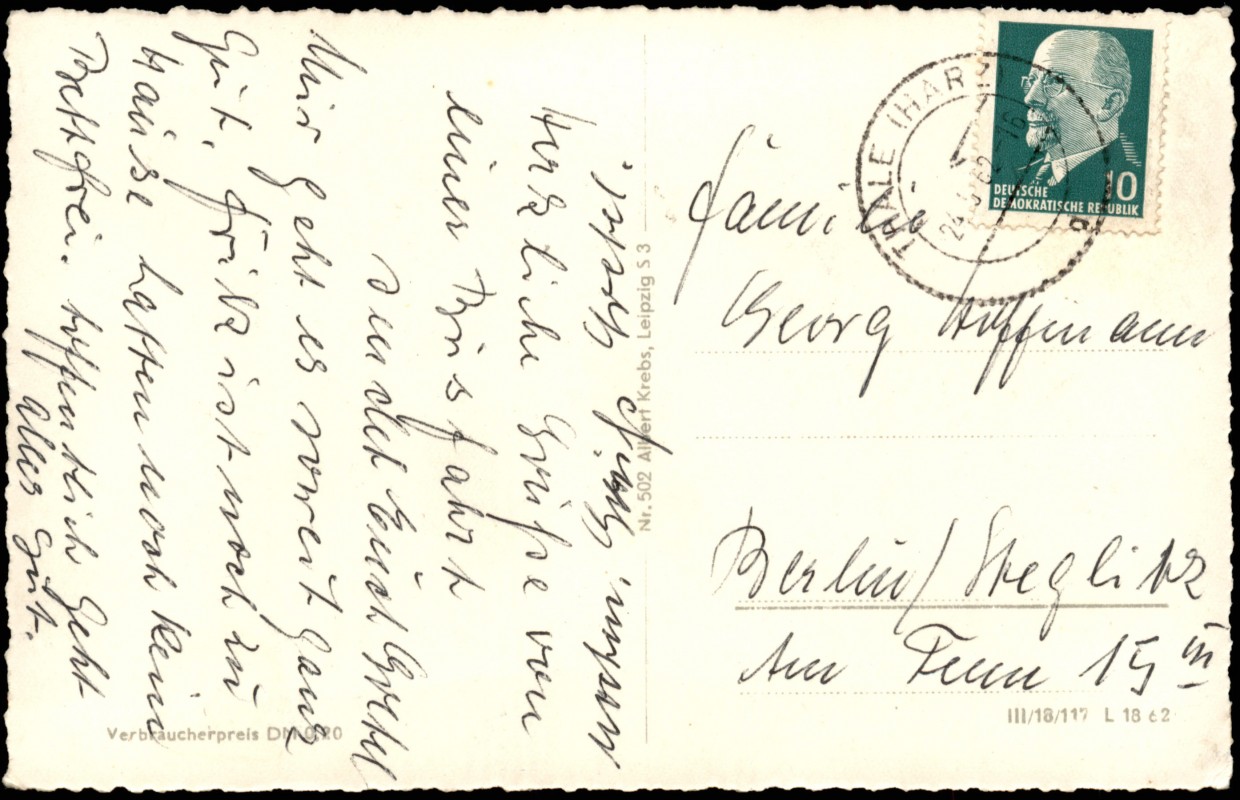 Herzliche Grüße von
einer Busfahrt
sendet Euch Gretel
Mir geht es soweit ganz
Gut. Fritz ist noch zu
Hause hatten noch kein
Bettfrei. hoffentlich Geht
alles Gut.
Verbraucherpreis DM 0,20
Nr. 502 Albert Krebs, Leipzig S 3
THALE (HARZ)
10
DEUTSCHE
DEMOKRATISCHE REPUBLIK
Familie
Georg Hoffmann
Berlin/Steglitz
Am Fenn 15 III
III/18/117 L 18 62